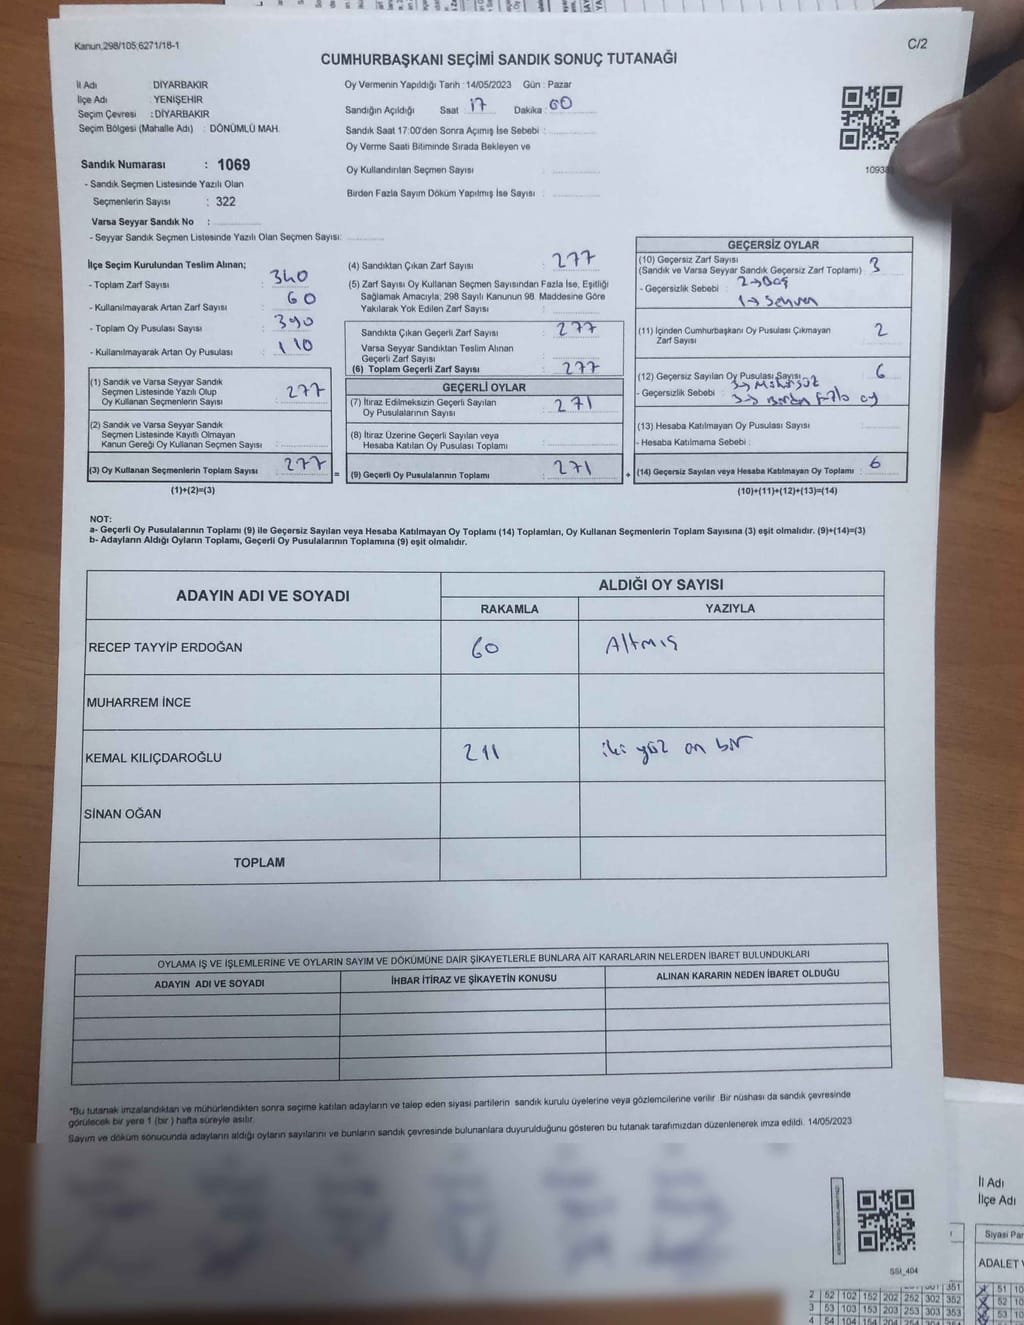 Kanun,298/105;6271/18-1
C/2
CUMHURBAŞKANI SEÇİMİ SANDIK SONUÇ TUTANAĞI
İl Adı : DİYARBAKIR
İlçe Adı : YENİŞEHİR
Seçim Çevresi : DİYARBAKIR
Seçim Bölgesi (Mahalle Adı) : DÖNÜMLÜ MAH.
Oy Vermenin Yapıldığı Tarih : 14/05/2023 Gün : Pazar
Sandığın Açıldığı Saat 17 Dakika 00
Sandık Saat 17:00'den Sonra Açımış İse Sebebi :
Oy Verme Saati Bitiminde Sırada Bekleyen ve
Oy Kullandırılan Seçmen Sayısı :
Birden Fazla Sayım Döküm Yapılmış İse Sayısı :
Sandık Numarası : 1069
- Sandık Seçmen Listesinde Yazılı Olan
Seçmenlerin Sayısı : 322
Varsa Seyyar Sandık No :
- Seyyar Sandık Seçmen Listesinde Yazılı Olan Seçmen Sayısı:
İlçe Seçim Kurulundan Teslim Alınan;
- Toplam Zarf Sayısı : 340
- Kullanılmayarak Artan Zarf Sayısı : 60
- Toplam Oy Pusulası Sayısı : 390
- Kullanılmayarak Artan Oy Pusulası : 110
(1) Sandık ve Varsa Seyyar Sandık
Seçmen Listesinde Yazılı Olup
Oy Kullanan Seçmenlerin Sayısı : 277
(2) Sandık ve Varsa Seyyar Sandık
Seçmen Listesinde Kayıtlı Olmayan
Kanun Gereği Oy Kullanan Seçmen Sayısı :
(3) Oy Kullanan Seçmenlerin Toplam Sayısı : 277 =
(1)+(2)=(3)
(4) Sandıktan Çıkan Zarf Sayısı : 277
(5) Zarf Sayısı Oy Kullanan Seçmen Sayısından Fazla İse, Eşitliği
Sağlamak Amacıyla; 298 Sayılı Kanunun 98. Maddesine Göre
Yakılarak Yok Edilen Zarf Sayısı :
Sandıkta Çıkan Geçerli Zarf Sayısı : 277
Varsa Seyyar Sandıktan Teslim Alınan
Geçerli Zarf Sayısı :
(6) Toplam Geçerli Zarf Sayısı : 277
GEÇERLİ OYLAR
(7) İtiraz Edilmeksizin Geçerli Sayılan
Oy Pusulalarının Sayısı : 271
(8) İtiraz Üzerine Geçerli Sayılan veya
Hesaba Katılan Oy Pusulası Toplamı :
(9) Geçerli Oy Pusulalarının Toplamı : 271 +
GEÇERSİZ OYLAR
(10) Geçersiz Zarf Sayısı
(Sandık ve Varsa Seyyar Sandık Geçersiz Zarf Toplamı) : 3
- Geçersizlik Sebebi : 2→Boş
1→
(11) İçinden Cumhurbaşkanı Oy Pusulası Çıkmayan
Zarf Sayısı : 2
(12) Geçersiz Sayılan Oy Pusulası Sayısı : 6
- Geçersizlik Sebebi : 3→Mühürsüz
3→Birden fazla oy
(13) Hesaba Katılmayan Oy Pusulası Sayısı :
- Hesaba Katılmama Sebebi :
(14) Geçersiz Sayılan veya Hesaba Katılmayan Oy Toplamı : 6
(10)+(11)+(12)+(13)=(14)
NOT:
a- Geçerli Oy Pusulalarının Toplamı (9) ile Geçersiz Sayılan veya Hesaba Katılmayan Oy Toplamı (14) Toplamları, Oy Kullanan Seçmenlerin Toplam Sayısına (3) eşit olmalıdır. (9)+(14)=(3)
b- Adayların Aldığı Oyların Toplamı, Geçerli Oy Pusulalarının Toplamına (9) eşit olmalıdır.
ADAYIN ADI VE SOYADI
ALDIĞI OY SAYISI
RAKAMLA YAZIYLA
RECEP TAYYİP ERDOĞAN 60 Altmış
MUHARREM İNCE
KEMAL KILIÇDAROĞLU 211 iki yüz on bir
SİNAN OĞAN
TOPLAM
OYLAMA İŞ VE İŞLEMLERİNE VE OYLARIN SAYIM VE DÖKÜMÜNE DAİR ŞİKAYETLERLE BUNLARA AİT KARARLARIN NELERDEN İBARET BULUNDUKLARI
ADAYIN ADI VE SOYADI İHBAR İTİRAZ VE ŞİKAYETİN KONUSU ALINAN KARARIN NEDEN İBARET OLDUĞU
*Bu tutanak imzalandıktan ve mühürlendikten sonra seçime katılan adayların ve talep eden siyasi partilerin sandık kurulu üyelerine veya gözlemcilerine verilir. Bir nüshası da sandık çevresinde
görülecek bir yere 1 (bir ) hafta süreyle asılır.
Sayım ve döküm sonucunda adayların aldığı oyların sayılarını ve bunların sandık çevresinde bulunanlara duyurulduğunu gösteren bu tutanak tarafımızdan düzenlenerek imza edildi. 14/05/2023
SSI_404
İl Adı
İlçe Adı
Siyasi Par
ADALET V
2 52 102 152 202 252 302 352
3 53 103 153 203 253 303 353